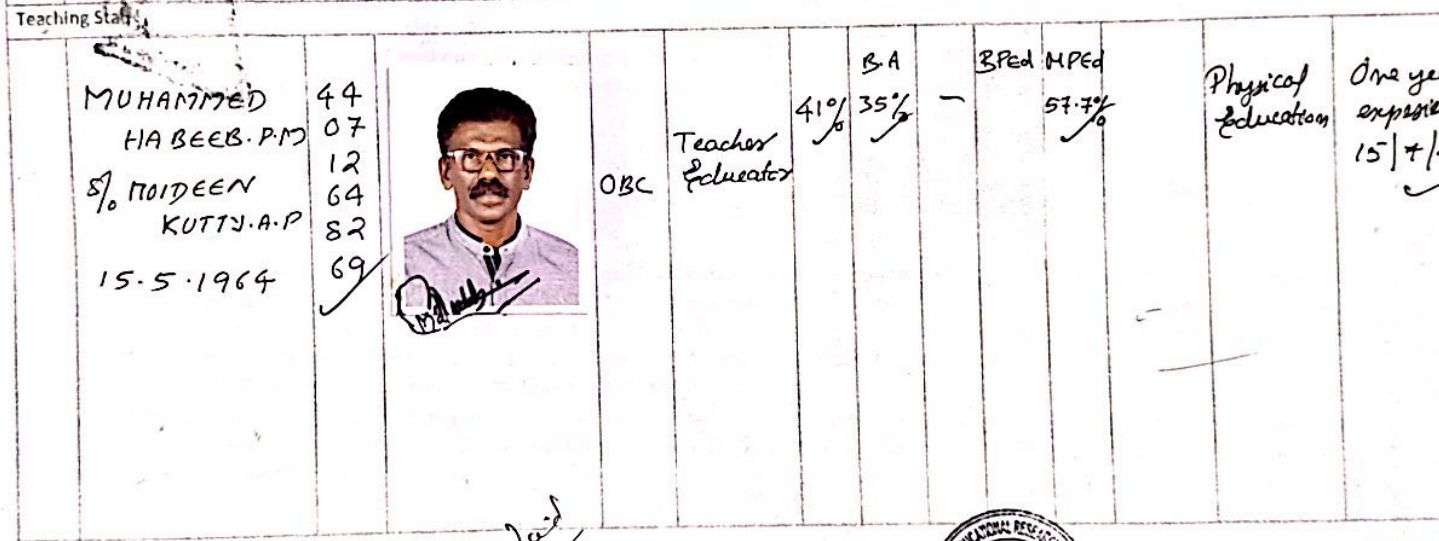 Teaching Staff
MUHAMMED
HABEEB.P.M
S/o MOIDEEN
KUTTY.A.P
15.5.1964
44
07
12
64
82
69
OBC
Teacher
Educator
41%
B.A
35%
—
BPEd
MPEd
57.7%
Physical
Education
One
15/